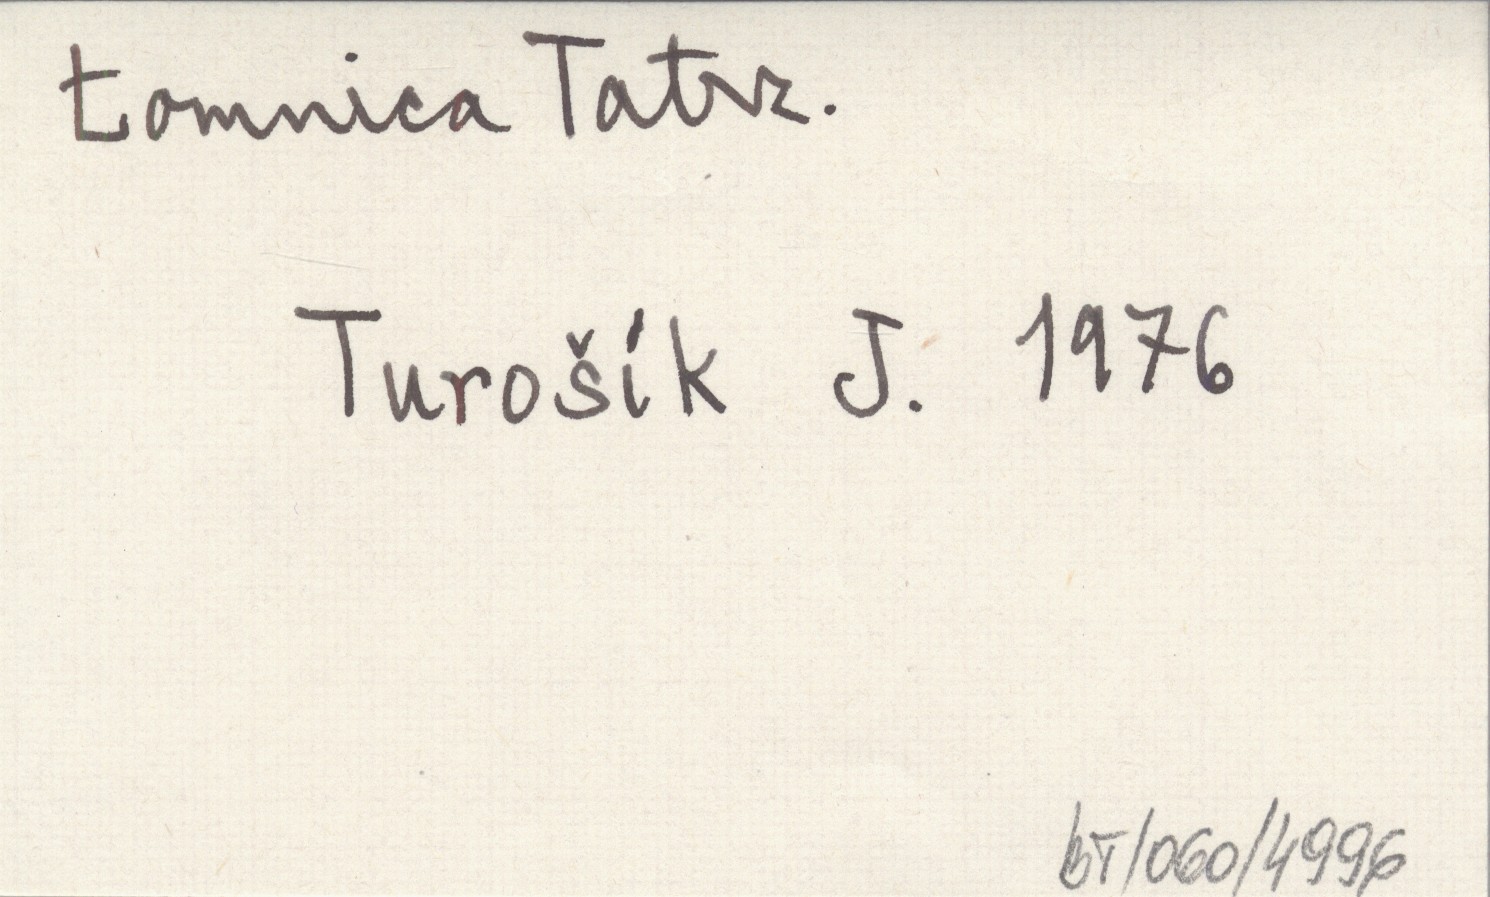 Łomnica Tatrz.
Turošík J. 1976
bT/060/4996